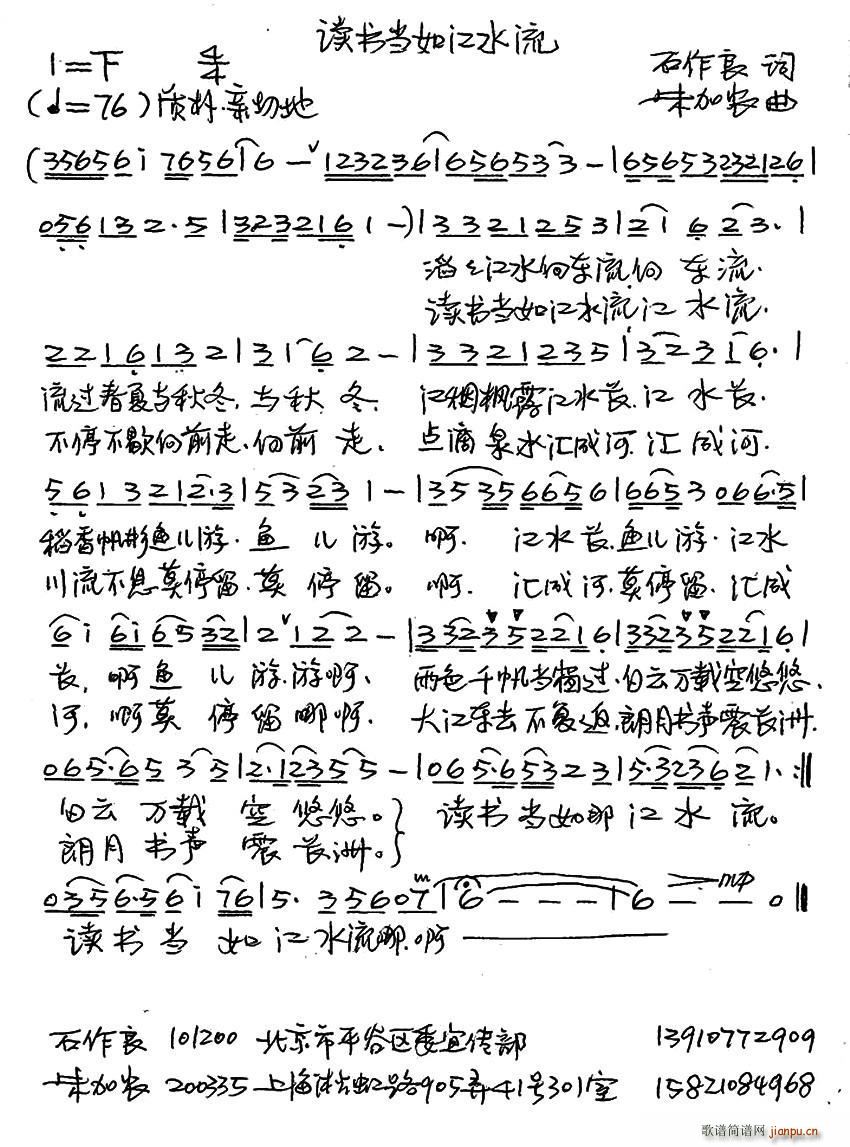 读书当如江水流
1=F 4/4
石作良 词
(♩=76)质朴.亲切地
朱加农 曲
(35656i 76561 6 - 123236 1656533 3 - | 65653232126 |
056132.5 | 3232161 -) | 3321253 | 21 6 23. |
滔滔江水向东流向 东流.
读书当如江水流江 水流.
2216132 | 3162 - | 3321235 | 32316. |
流过春夏与秋冬,与秋 冬.
江烟枫露江水长.江 水长.
不停不歇向前走,向前 走.
点滴泉水汇成河.汇成河.
5613212.3 | 53231 - | 35356656 | 6653066.5 |
稻香帆影鱼儿游.鱼儿游。啊. 江水长.鱼儿游.江水
川流不息莫停留.莫停留。啊. 汇成河.莫停留.汇成
6i 6i6532 | 2122 - | 33235 2216 | 33235 2216 |
长,啊鱼儿游.游啊、 两色千帆当独过.白云万载空悠悠.
河,啊莫停留哪啊. 大江东去不复返.朗月书声震长洲.
065.65 35 | 2.12355 - | 065.65323 | 5.32362 1. :||
白云 万载 空 悠悠。 读书当如那江水 流。
朗月 书声 震 长洲。
0356.56i 76 | 5. 35607 | 6 - - - | 6 - - 0 ||
mp
读书当 如江水流哪.啊
石作良 101200 北京市平谷区委宣传部 13910772909
朱加农 200335 上海淞虹路905弄41号301室 15821084968
歌谱简谱网
jianpu.cn